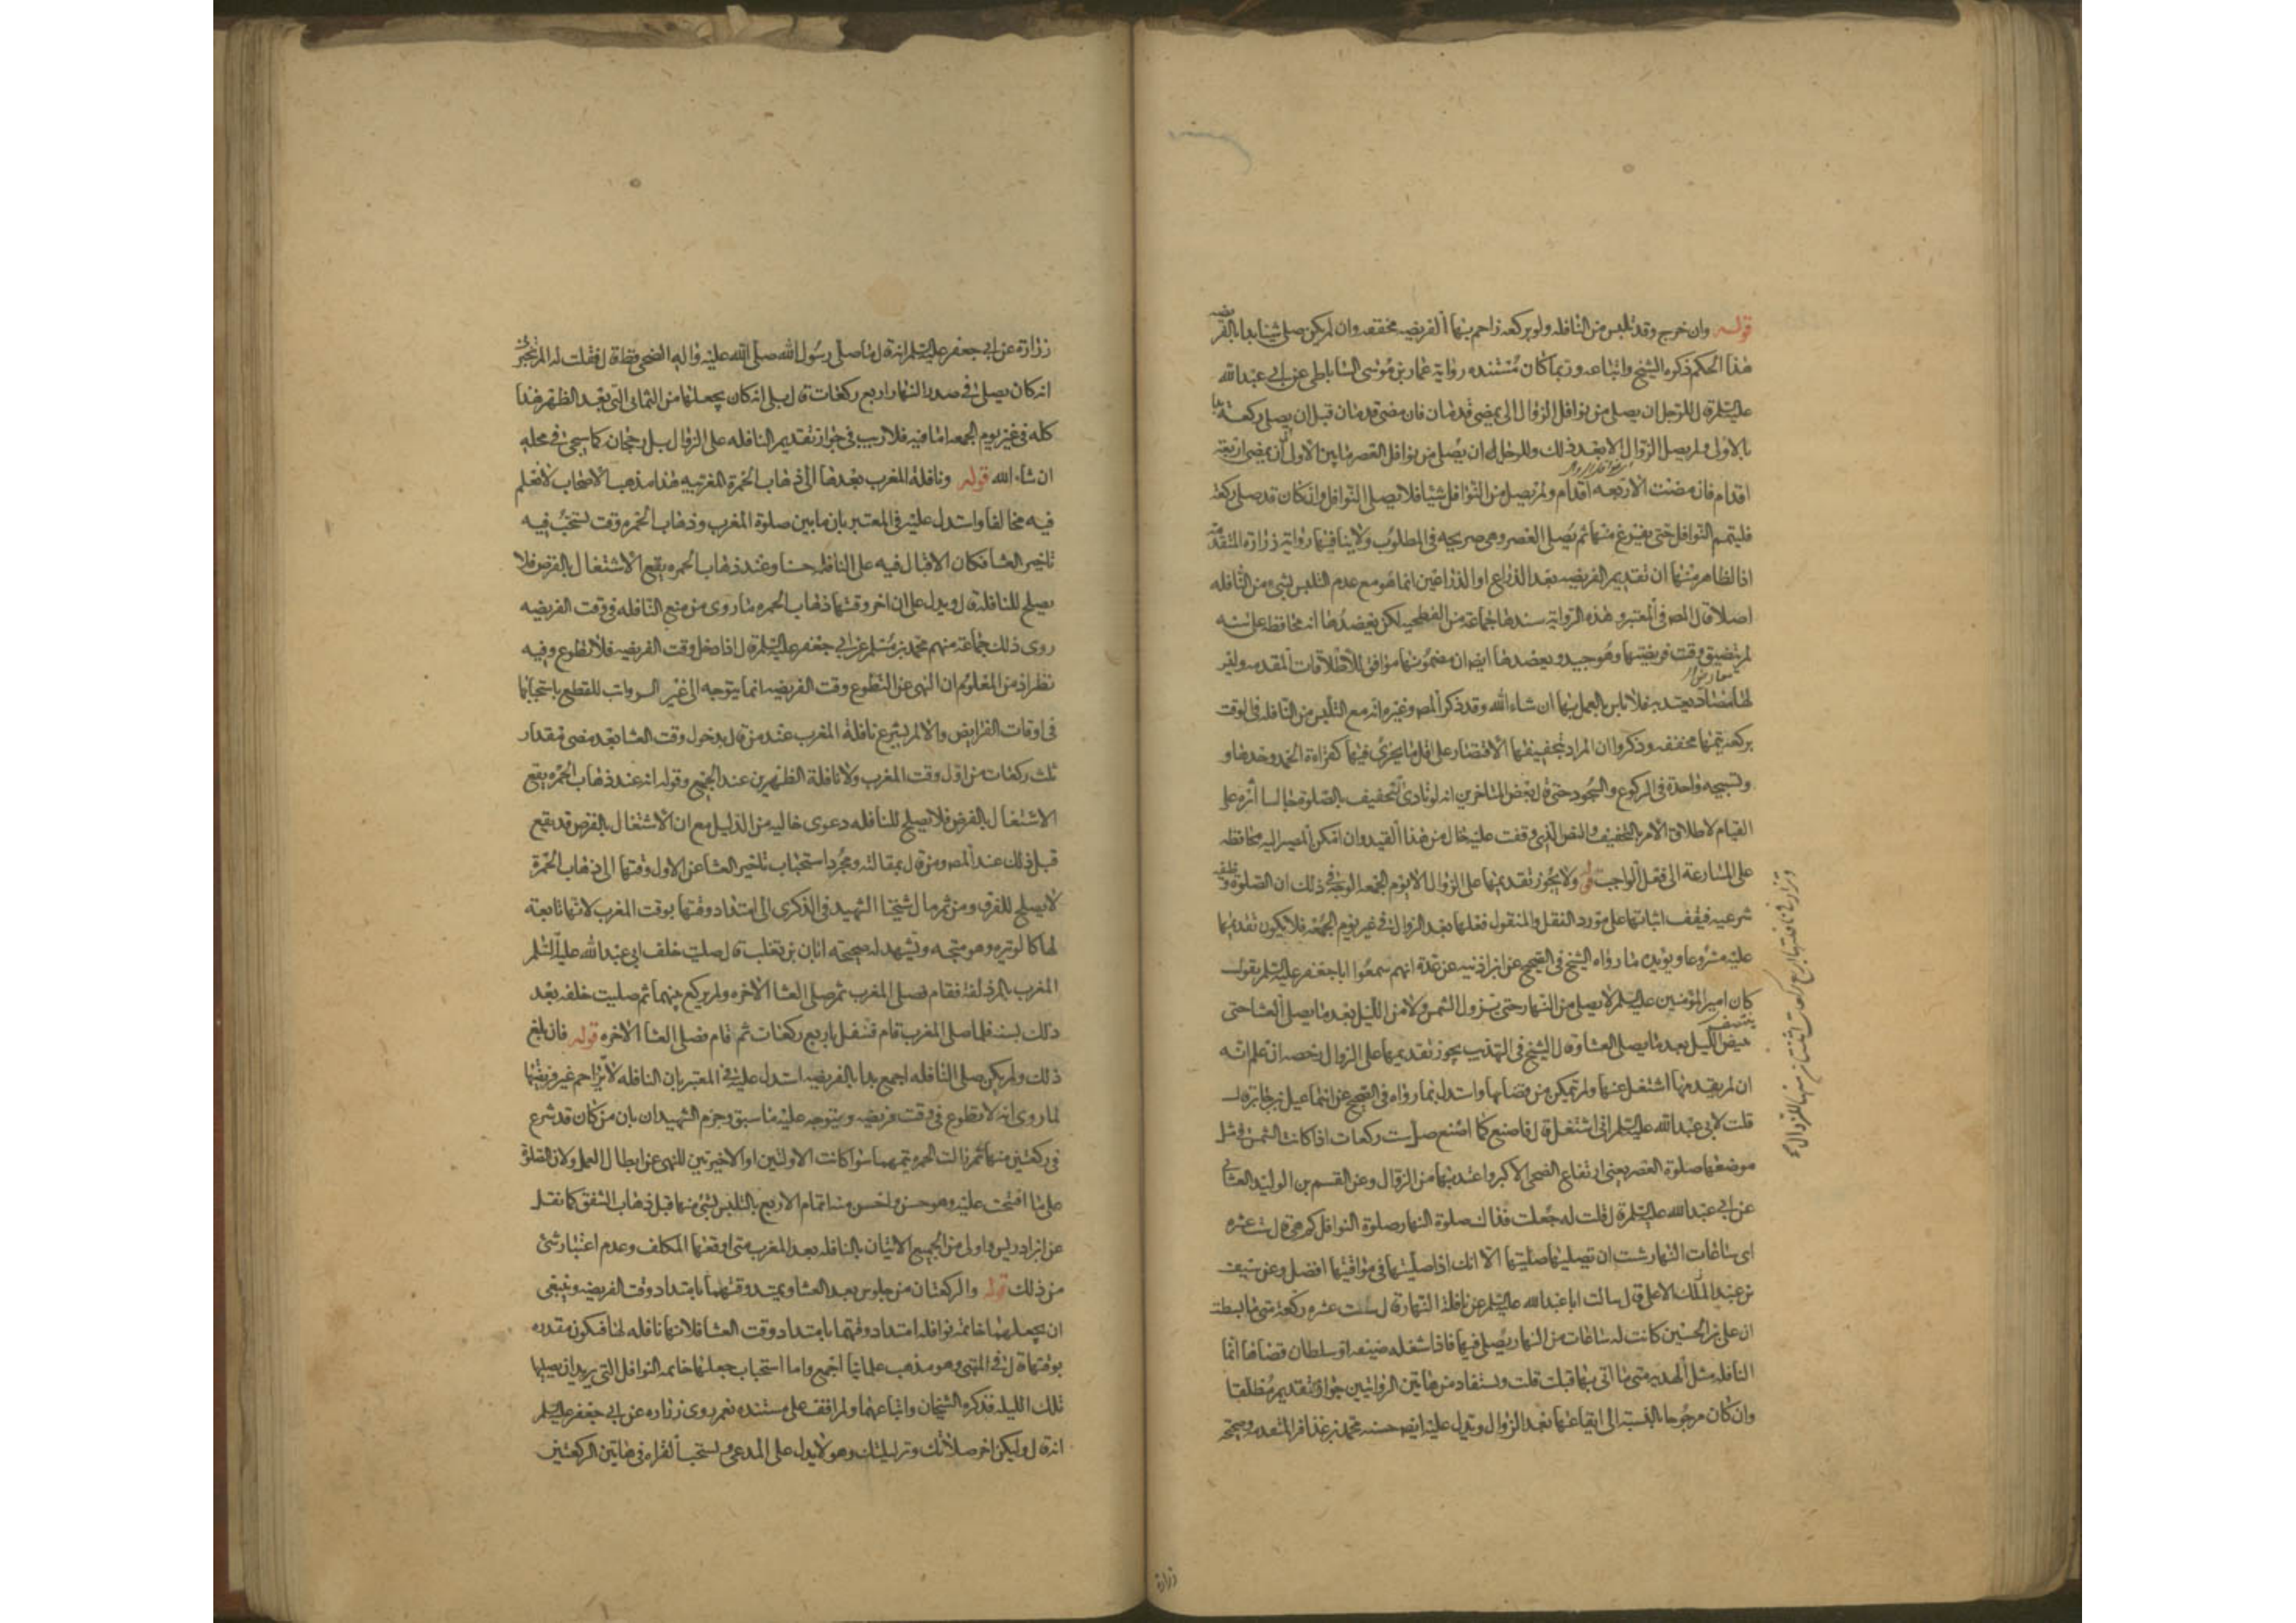 قوله وان خرج وقد تلبس من النافله ولو بركعه زاحم بها الفريضه مخففه وان لم يكن صلى شيئا بدا بالفريضه
هذا الحكم ذكره الشيخ واتباعه وربما كان مستنده رواية عمار بن موسى الساباطي عن ابي عبد الله
عليه السلم قال للرجل ان يصلي من نوافل الزوال الى ان يمضي قدمان فان مضى قدمان قبل ان يصلي ركعة بدا
بالاولى ولم يصل الزوال الا بعد ذلك وللرجل ان يصلي من نوافل العصر ما بين الاولى الى ان يمضي اربعة
اقدام فان مضت الاربعه اقدام ولم يصل من النوافل شيئا فلا يصلي النوافل وان كان قد صلى ركعة
فليتم النوافل حتى يفرغ منها ثم يصلي العصر وهي صريحه في المطلوب ولا ينافيها رواية زراره المتقدمة
اذ الظاهر منها ان تقديم الفريضه بعد الذراع او الذراعين انما هو مع عدم التلبس بشيء من النافله
اصلا قال المص في المعتبر وهذه الرواية سندها جماعة من الفطحيه لكن يعضدها انه محافظه على سنه
لم يتضيق وقت فريضتها وهو جيد ويعضدها ايضا ان مضمونها موافق للاطلاقات المقدمه وليس
لها معارض يعتد به فلا باس بالعمل بها ان شاء الله وقد ذكر المص وغيره انه مع التلبس من النافله في الوقت
بركعه يتمها مخففه وذكروا ان المراد بتخفيفها الاقتصار على اقل ما يجزي فيها كقراءة الحمد وحدها و
وتسبيحه واحدة في الركوع والسجود حتى قال بعض المتاخرين انه لو تادى التخفيف بالصلوة جالسا آثره على
القيام لاطلاق الامر بالتخفيف والنص الذي وقفت عليه خال من هذا القيد وان امكن المصير اليه محافظه
على المسارعة الى فعل الواجب قوله ولا يجوز تقديمها على الزوال الا يوم الجمعه الوجه في ذلك ان الصلوة وظيفه
شرعيه فيقف اثباتها على مورد النقل والمنقول فعلها بعد الزوال في غير يوم الجمعه فلا يكون تقديمها
عليه مشروعا ويؤيده ما رواه الشيخ في الصحيح عن ابن اذينه عن عدة انهم سمعوا ابا جعفر عليه السلم يقول
كان امير المؤمنين عليه السلم لا يصلي من النهار حتى تزول الشمس ولا من الليل بعد ما يصلي العشا حتى
ينتصف الليل بعد ما يصلي العشا وقال الشيخ في التهذيب يجوز تقديمها على الزوال رخصه ان علم انه
ان لم يقدمها اشتغل عنها ولم يتمكن من قضائها واستدل بما رواه في الصحيح عن اسماعيل بن جابر قال
قلت لابي عبد الله عليه السلم اني اشتغل قال فاصنع كما اصنع صل ست ركعات اذا كانت الشمس في مثل
موضعها صلوة العصر يعني ارتفاع الضحى الاكبر واعتد بها من الزوال وعن القسم بن الوليد الغساني
عن ابي عبد الله عليه السلم قال قلت له جعلت فداك صلوة النهار صلوة النوافل كم هي قال ست عشره
اي ساعات النهار شئت ان تصليها صليتها الا انك اذا صليتها في مواقيتها افضل وعن سيف
بن عبد الملك الاعلى قال سالت ابا عبد الله عليه السلم عن نافلة النهار قال ست عشره ركعة متى ما نشطت
ان علي بن الحسين كانت له ساعات من النهار يصلي فيها فاذا شغله ضيعه او سلطان قضاها انما
النافلة مثل الهديه متى ما اتى بها قبلت قلت ويستفاد من هاتين الروايتين جواز التقديم مطلقا
وان كان مرجوحا بالنسبة الى ايقاعها بعد الزوال ويدل عليه ايضا حسنه محمد بن عذافر المتقدمه وصحيحة
وتزاد في نافلتها اربع ركعات اثنتان منها للزوال
زراره
زرارة عن ابي جعفر عليه السلم انه قال ما صلى رسول الله صلى الله عليه واله الضحى قط قال فقلت له الم تخبرني
انه كان يصلي في صدر النهار اربع ركعات قال بلى انه كان يجعلها من الثماني التي بعد الظهر هذا
كله في غير يوم الجمعه اما فيه فلا ريب في جواز تقديم النافله على الزوال بل رجحان كما سيجئ في محله
ان شاء الله قوله ونافلة المغرب بعدها الى ذهاب الحمرة المغربيه هذا مذهب الاصحاب لا نعلم
فيه مخالفا واستدل عليه في المعتبر بان ما بين صلوة المغرب وذهاب الحمره وقت يستحب فيه
تاخير العشا فكان الاقبال فيه على النافله حسنا وعند ذهاب الحمره يقع الاشتغال بالفرض فلا
يصلح للنافله قال ويدل على ان اخر وقتها ذهاب الحمره ما روي من منع النافله في وقت الفريضه
روى ذلك جماعة منهم محمد بن مسلم عن ابي جعفر عليه السلم قال اذا دخل وقت الفريضه فلا تطوع وفيه
نظر اذ من المعلوم ان النهي عن التطوع وقت الفريضه انما يتوجه الى غير الرواتب للقطع باستحبابها
في اوقات الفرايض والا لم يشرع نافلة المغرب عند من قال بدخول وقت العشا بعد مضي مقدار
ثلث ركعات من اول وقت المغرب ولا نافلة الظهرين عند الجميع وقوله انه عند ذهاب الحمره يقع
الاشتغال بالفرض فلا يصلح للنافله دعوى خاليه من الدليل مع ان الاشتغال بالفرض قد يقع
قبل ذلك عند المص ومن قال بمقالته ومجرد استحباب تاخير العشا عن الاول وقتها الى ذهاب الحمرة
لا يصلح للفرق ومن ثم مال شيخنا الشهيد في الذكرى الى امتداد وقتها بوقت المغرب لانها تابعة
لها كالوتيره وهو متجه ويشهد له صحيحه ابان بن تغلب قال صليت خلف ابي عبد الله عليه السلم
المغرب بالمزدلفة فقام فصلى المغرب ثم صلى العشا الاخره ولم يركع بينهما ثم صليت خلفه بعد
ذلك بسنه فلما صلى المغرب قام فتنفل باربع ركعات ثم قام فصلى العشا الاخره قوله فان بلغ
ذلك ولم يكن صلى النافله اجمع بدا بالفريضه استدل عليه في المعتبر بان النافله لا تزاحم غير فريضتها
لما روي انه لا تطوع في وقت فريضه ويتوجه عليه ما سبق وجزم الشهيدان بان من كان قد شرع
في ركعتين منها ثم زالت الحمره يتمهما سوا كانت الاوليين او الاخيرتين للنهي عن ابطال العمل ولان الصلوة
على ما افتتحت عليه وهو حسن واحسن منه اتمام الاربع بالتلبس بشئ منها قبل ذهاب الشفق كما نقل
عن ابن ادريس واولى من الجميع الاتيان بالنافله بعد المغرب متى اوقعها المكلف وعدم اعتبار شئ
من ذلك قوله والركعتان من جلوس بعد العشا ويمتد وقتهما بامتداد وقت الفريضه وينبغي
ان يجعلهما خاتمة نوافله امتداد وقتها بامتداد وقت العشا فلانها نافله لها فتكون مقدره
بوقتها قال في المنتهى وهو مذهب علمائنا اجمع واما استحباب جعلها خاتمه النوافل التي يريد ان يصليها
تلك الليله فذكره الشيخان واتباعهما ولم اقف على مستنده نعم روى زراره عن ابي جعفر عليه السلم
انه قال وليكن اخر صلاتك وتر ليلتك وهو لا يدل على المدعى ويستحب القراءه في هاتين الركعتين